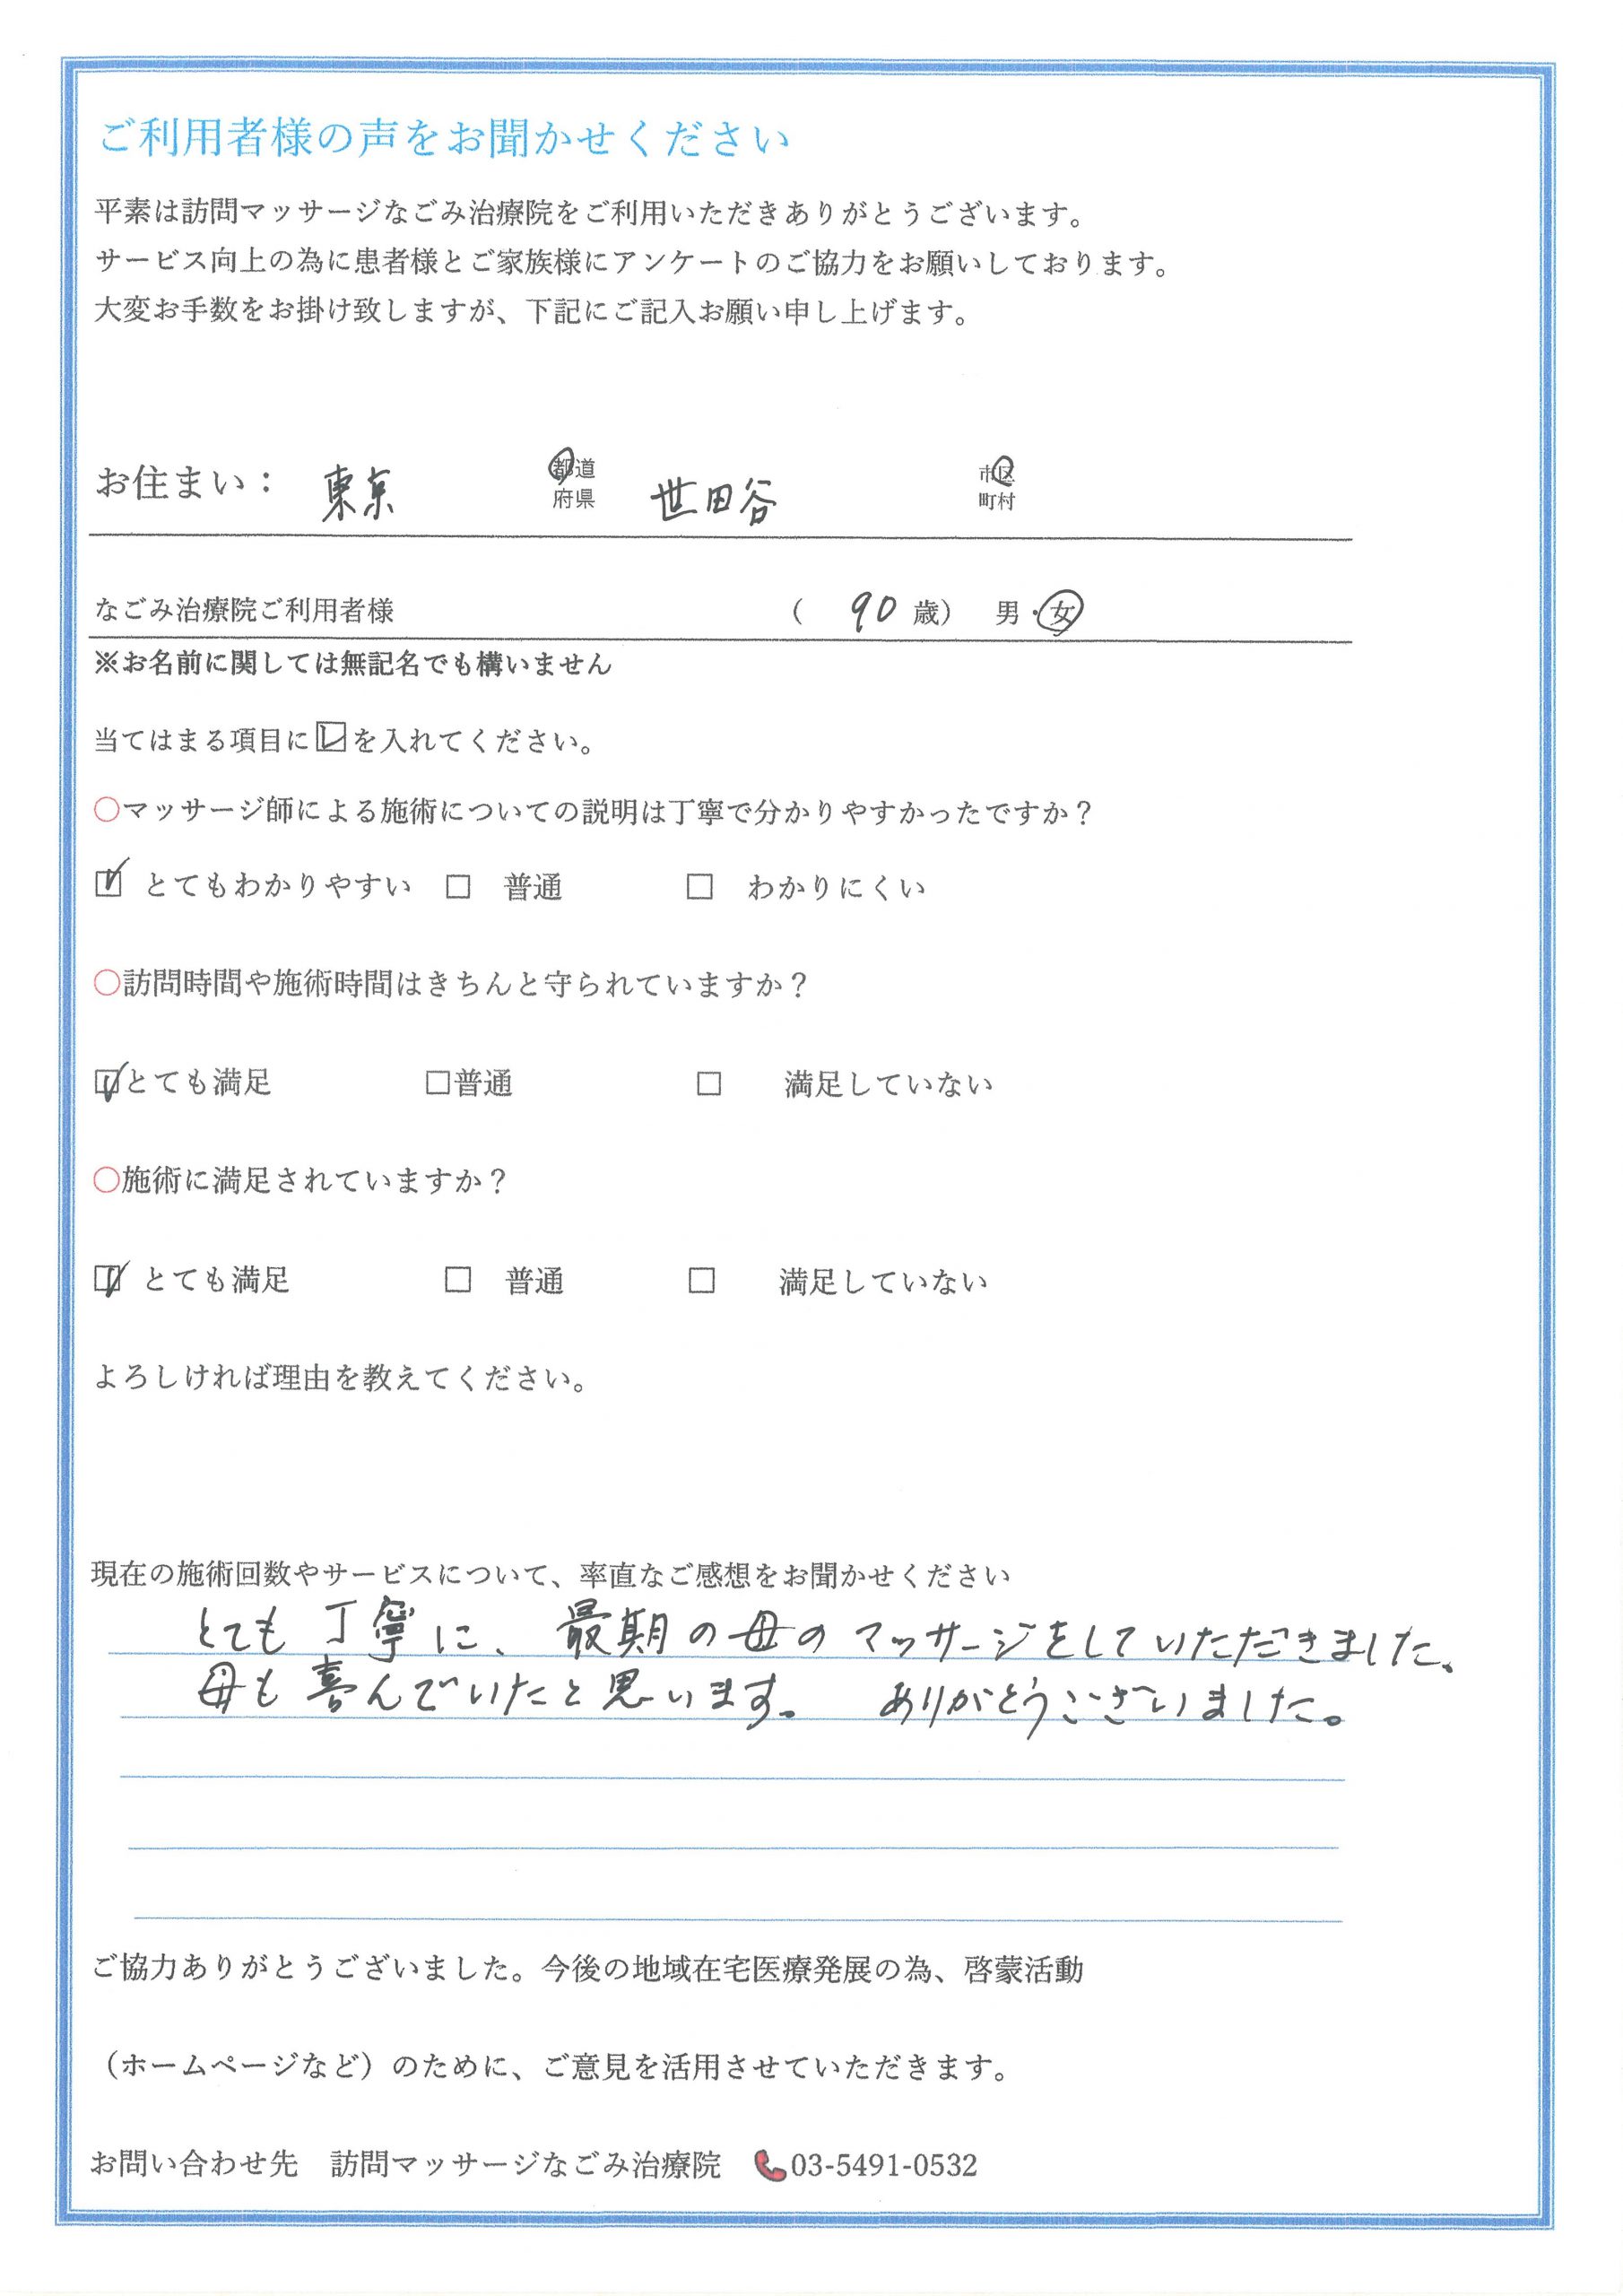 ご利用者様の声をお聞かせください
平素は訪問マッサージなごみ治療院をご利用いただきありがとうございます。
サービス向上の為に患者様とご家族様にアンケートのご協力をお願いしております。
大変お手数をお掛け致しますが、下記にご記入お願い申し上げます。
お住まい： 東京 都道府県 世田谷 市区町村
なごみ治療院ご利用者様 （ 90 歳） 男・女
※お名前に関しては無記名でも構いません
当てはまる項目に☑を入れてください。
○マッサージ師による施術についての説明は丁寧で分かりやすかったですか？
☑ とてもわかりやすい □ 普通 □ わかりにくい
○訪問時間や施術時間はきちんと守られていますか？
☑とても満足 □普通 □ 満足していない
○施術に満足されていますか？
☑ とても満足 □ 普通 □ 満足していない
よろしければ理由を教えてください。
現在の施術回数やサービスについて、率直なご感想をお聞かせください
とても丁寧に、最期の母のマッサージをしていただきました、
母も喜んでいたと思います。 ありがとうございました。
ご協力ありがとうございました。今後の地域在宅医療発展の為、啓蒙活動
（ホームページなど）のために、ご意見を活用させていただきます。
お問い合わせ先 訪問マッサージなごみ治療院 📞03-5491-0532